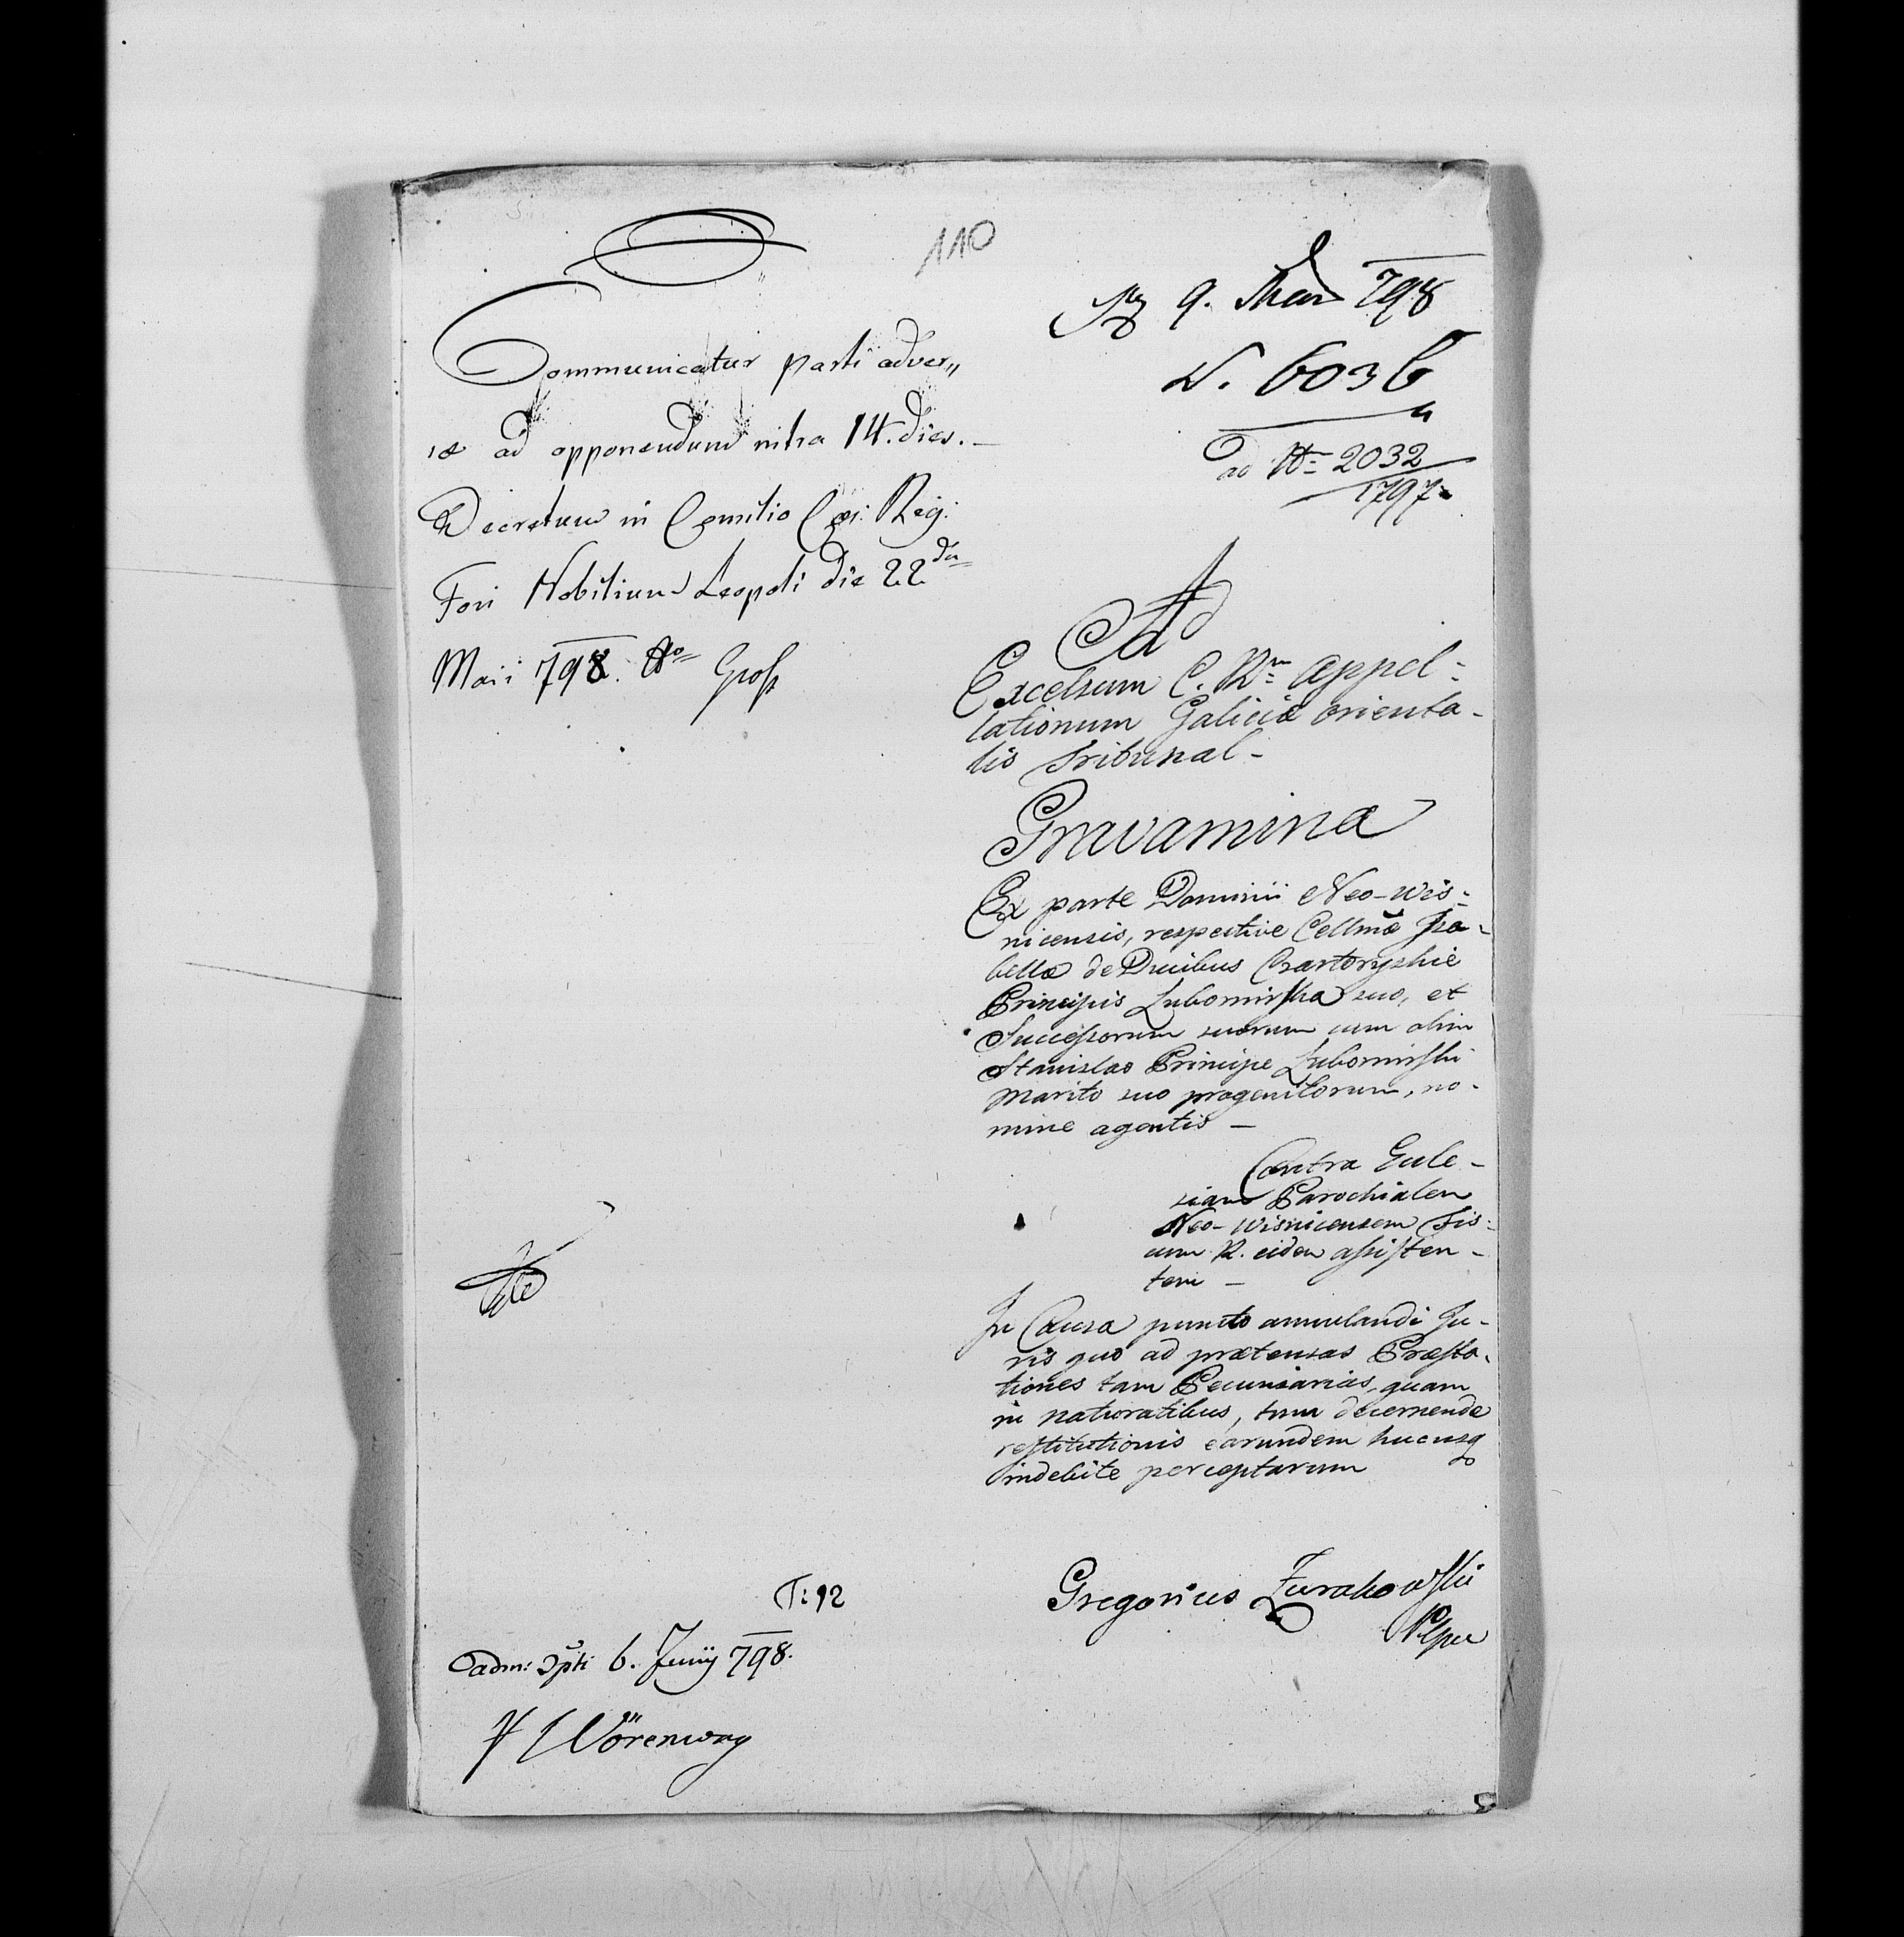 110
Communicatur parti adver„
sæ ad opponendum intra 14. dies. —
Decretum in Consilio Cæs: Reg:
Fori Nobilium Leopoli die 22da
Maii 798.
Groß
9. 798
N. 6036
ad Nr 2032
1797
Ad
Excelsum C. Rm Appel-
lationum Galiciæ orienta-
lis Tribunal —
Gravamina
Ex parte Dominii Neo-Wis-
nicensis, respective Cellmæ Isa-
bellæ de Ducibus Czartoryskie
Principis Lubomirska suo, et
Successorum suorum cum olim
Stanislao Principe Lubomirski
marito suo progenitorum, no-
mine agentis —
Contra Eccle-
siam Parochialem
Neo-Wisnicensem Fis-
cum R. eidem assisten-
tem —
In Causa puncto annulandi Ju-
ris quo ad prætensas Præsta-
tiones tam Pecuniarias, quam
in naturalibus, tum decernendæ
restitutionis earundem hucusq
indebite perceptarum
Gregorius Żurakowski
T: 92
adm: 6. Junij 798.